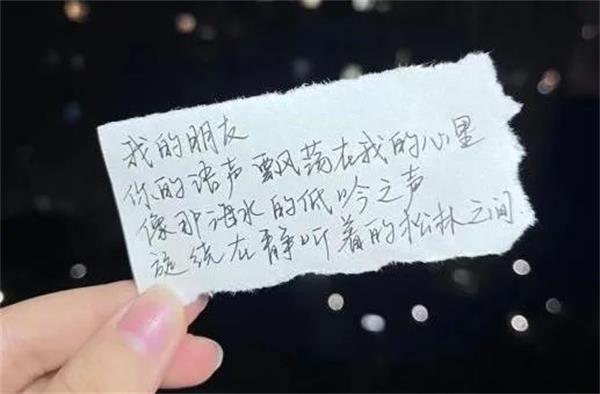 我的朋友
你的语声飘荡在我的心里
像那海水的低吟之声
旋绕在静听着的松林之间.